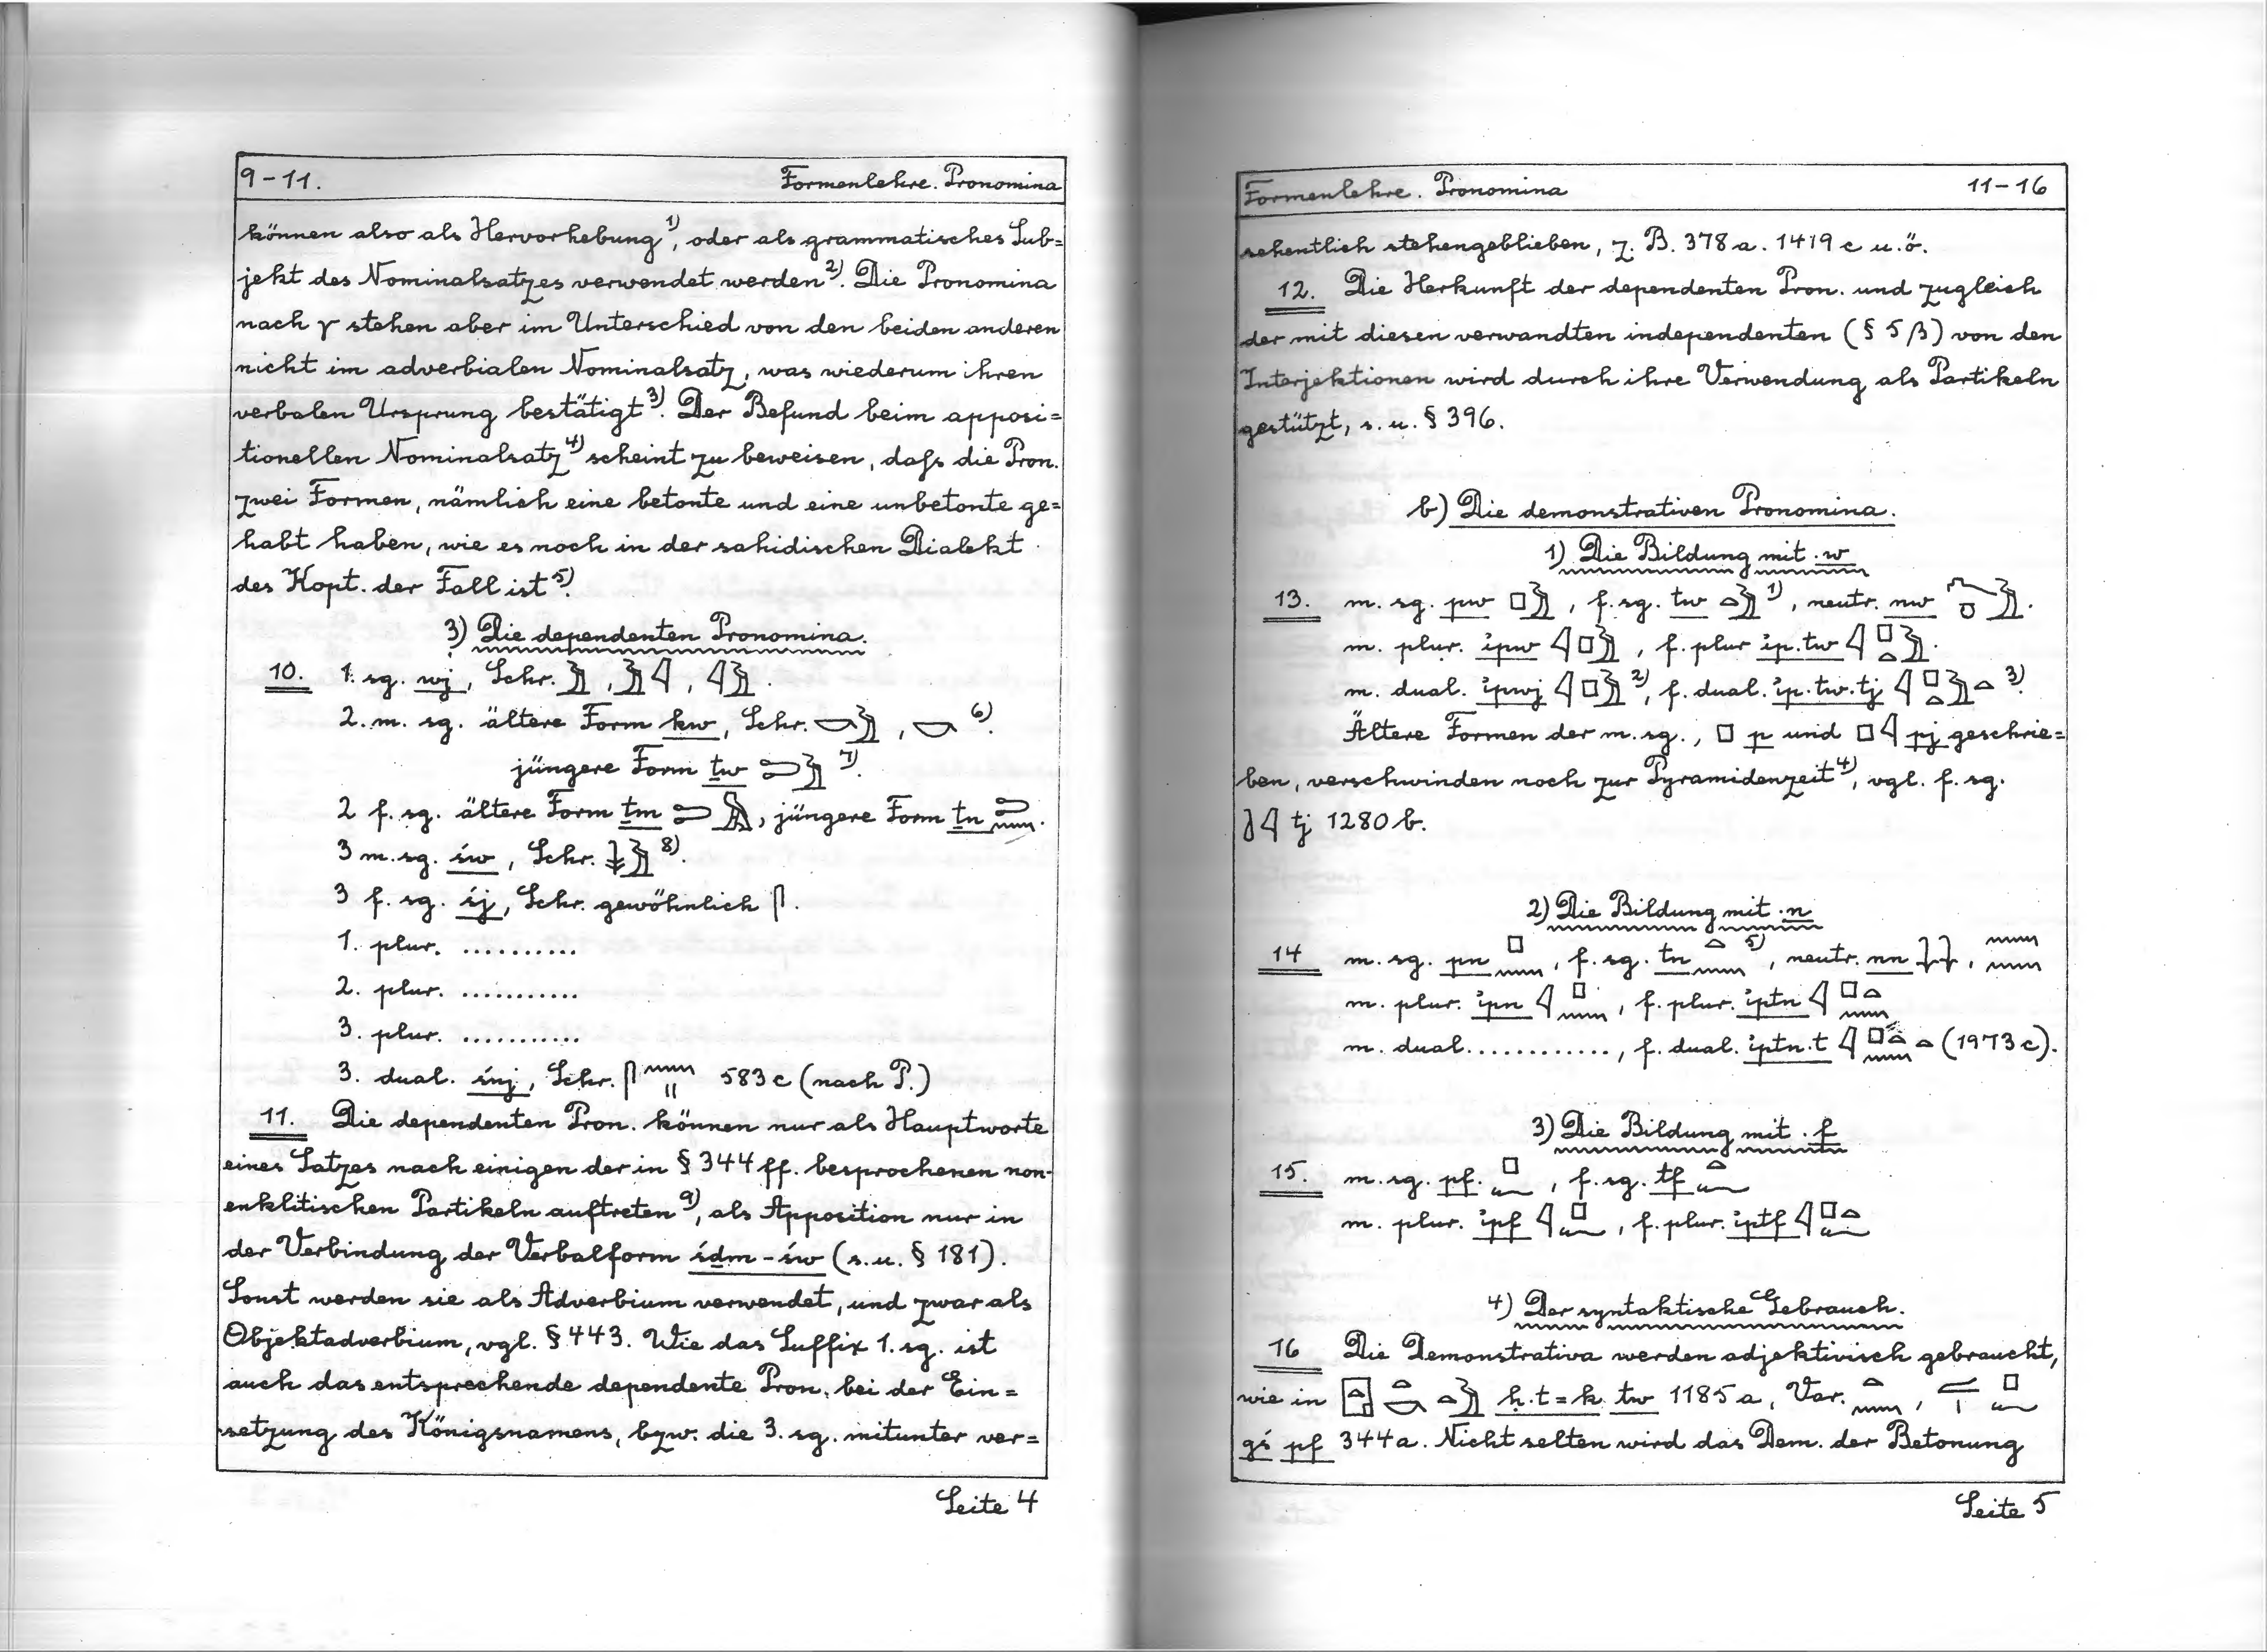 9-11. Formenlehre. Pronomina
können also als Hervorhebung¹⁾, oder als grammatisches Sub=
jekt des Nominalsatzes verwendet werden²⁾. Die Pronomina
nach γ stehen aber im Unterschied von den beiden anderen
nicht im adverbialen Nominalsatz, was wiederum ihren
verbalen Ursprung bestätigt³⁾. Der Befund beim apposi=
tionellen Nominalsatz⁴⁾ scheint zu beweisen, daſs die Pron.
zwei Formen, nämlich eine betonte und eine unbetonte ge=
habt haben, wie es noch in der sahidischen Dialekt
des Kopt. der Fall ist⁵⁾.
3) Die dependenten Pronomina.
10. 1. sg. wj, Schr. 𓅱, 𓅱𓇋, 𓇋𓅱.
2. m. sg. ältere Form kw, Schr. 𓎡𓅱, 𓎡⁶⁾.
jüngere Form ṯw 𓍿𓅱⁷⁾.
2 f. sg. ältere Form ṯm 𓍿𓅓, jüngere Form ṯn 𓍿𓈖.
3 m. sg. św, Schr. 𓇓𓅱⁸⁾.
3 f. sg. śj, Schr. gewöhnlich 𓋴.
1. plur. ..........
2. plur. ...........
3. plur. ...........
3. dual. śnj, Schr. 𓋴𓈖𓏭 583c (nach P.)
11. Die dependenten Pron. können nur als Hauptworte
eines Satzes nach einigen der in § 344 ff. besprochenen non-
enklitischen Partikeln auftreten⁹⁾, als Apposition nur in
der Verbindung der Verbalform śḏm-św (s. u. § 181).
Sonst werden sie als Adverbium verwendet, und zwar als
Objektadverbium, vgl. § 443. Wie das Suffix 1. sg. ist
auch das entsprechende dependente Pron. bei der Ein=
setzung des Königsnamens, bzw. die 3. sg. mitunter ver=
Seite 4
Formenlehre. Pronomina 11-16
sehentlich stehengeblieben, z. B. 378a. 1419c u. ö.
12. Die Herkunft der dependenten Pron. und zugleich
der mit diesen verwandten independenten (§ 5β) von den
Interjektionen wird durch ihre Verwendung als Partikeln
gestützt, s. u. § 396.
b) Die demonstrativen Pronomina.
1) Die Bildung mit .w
13. m. sg. pw 𓊪𓅱, f. sg. tw 𓏏𓅱¹⁾, neutr. nw 𓏌𓅱.
m. plur. ı͗pw 𓇋𓊪𓅱, f. plur ı͗p.tw 𓇋𓊪𓏏𓅱.
m. dual. ı͗pwj 𓇋𓊪𓅱²⁾, f. dual. ı͗p.tw.tj 𓇋𓊪𓏏𓅱𓏏³⁾.
Ältere Formen der m. sg., 𓊪 p und 𓊪𓇋 pj geschrie=
ben, verschwinden noch zur Pyramidenzeit⁴⁾, vgl. f. sg.
𓇋 tj 1280b.
2) Die Bildung mit .n
14 m. sg. pn 𓊪𓈖, f. sg. tn 𓏏𓈖⁵⁾, neutr. nn 𓇒𓇒, 𓈖𓈖
m. plur. ı͗pn 𓇋𓊪𓈖, f. plur. ı͗ptn 𓇋𓊪𓏏𓈖
m. dual............., f. dual. ı͗ptn.t 𓇋𓊪𓏏𓈖𓏏 (1973c).
3) Die Bildung mit .f
15. m. sg. pf. 𓊪𓆑, f. sg. tf 𓏏𓆑
m. plur. ı͗pf 𓇋𓊪𓆑, f. plur. ı͗ptf 𓇋𓊪𓏏𓆑
4) Der syntaktische Gebrauch.
16 Die Demonstrativa werden adjektivisch gebraucht,
wie in 𓉗𓏏𓎡𓏏𓅱 ḥ.t=k tw 1185a, Var. 𓏏𓈖, 𓐛𓏤𓊪𓆑
gś pf 344a. Nicht selten wird das Dem. der Betonung
Seite 5